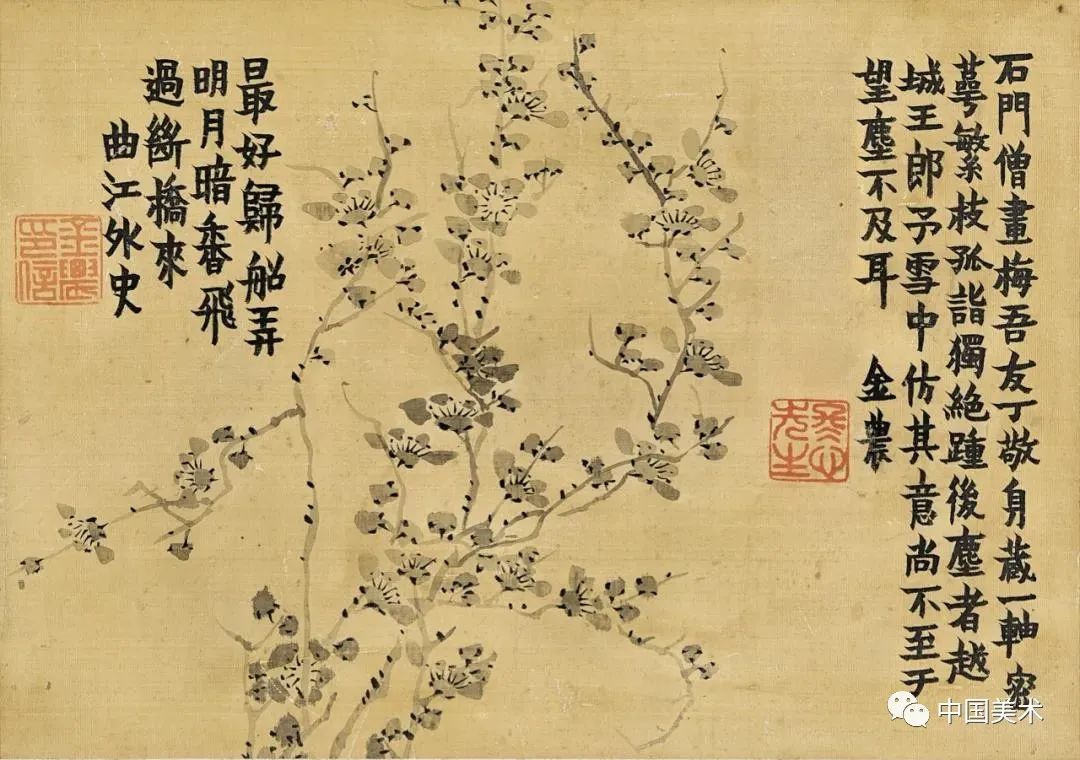 石門僧畫梅吾友丁敬身藏一軸密
萼繁枝孤詣獨絶踵後塵者越
城王郎予雪中仿其意尚不至于
望塵不及耳 金農
冬心先生
最好歸船弄
明月暗香飛
過斷橋來
曲江外史
金農印信
中国美术